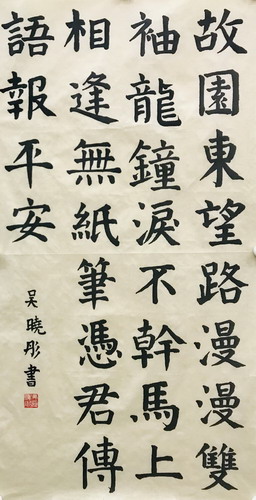 故園東望路漫漫雙
袖龍鐘淚不幹馬上
相逢無紙筆憑君傳
語報平安
吳曉彤書